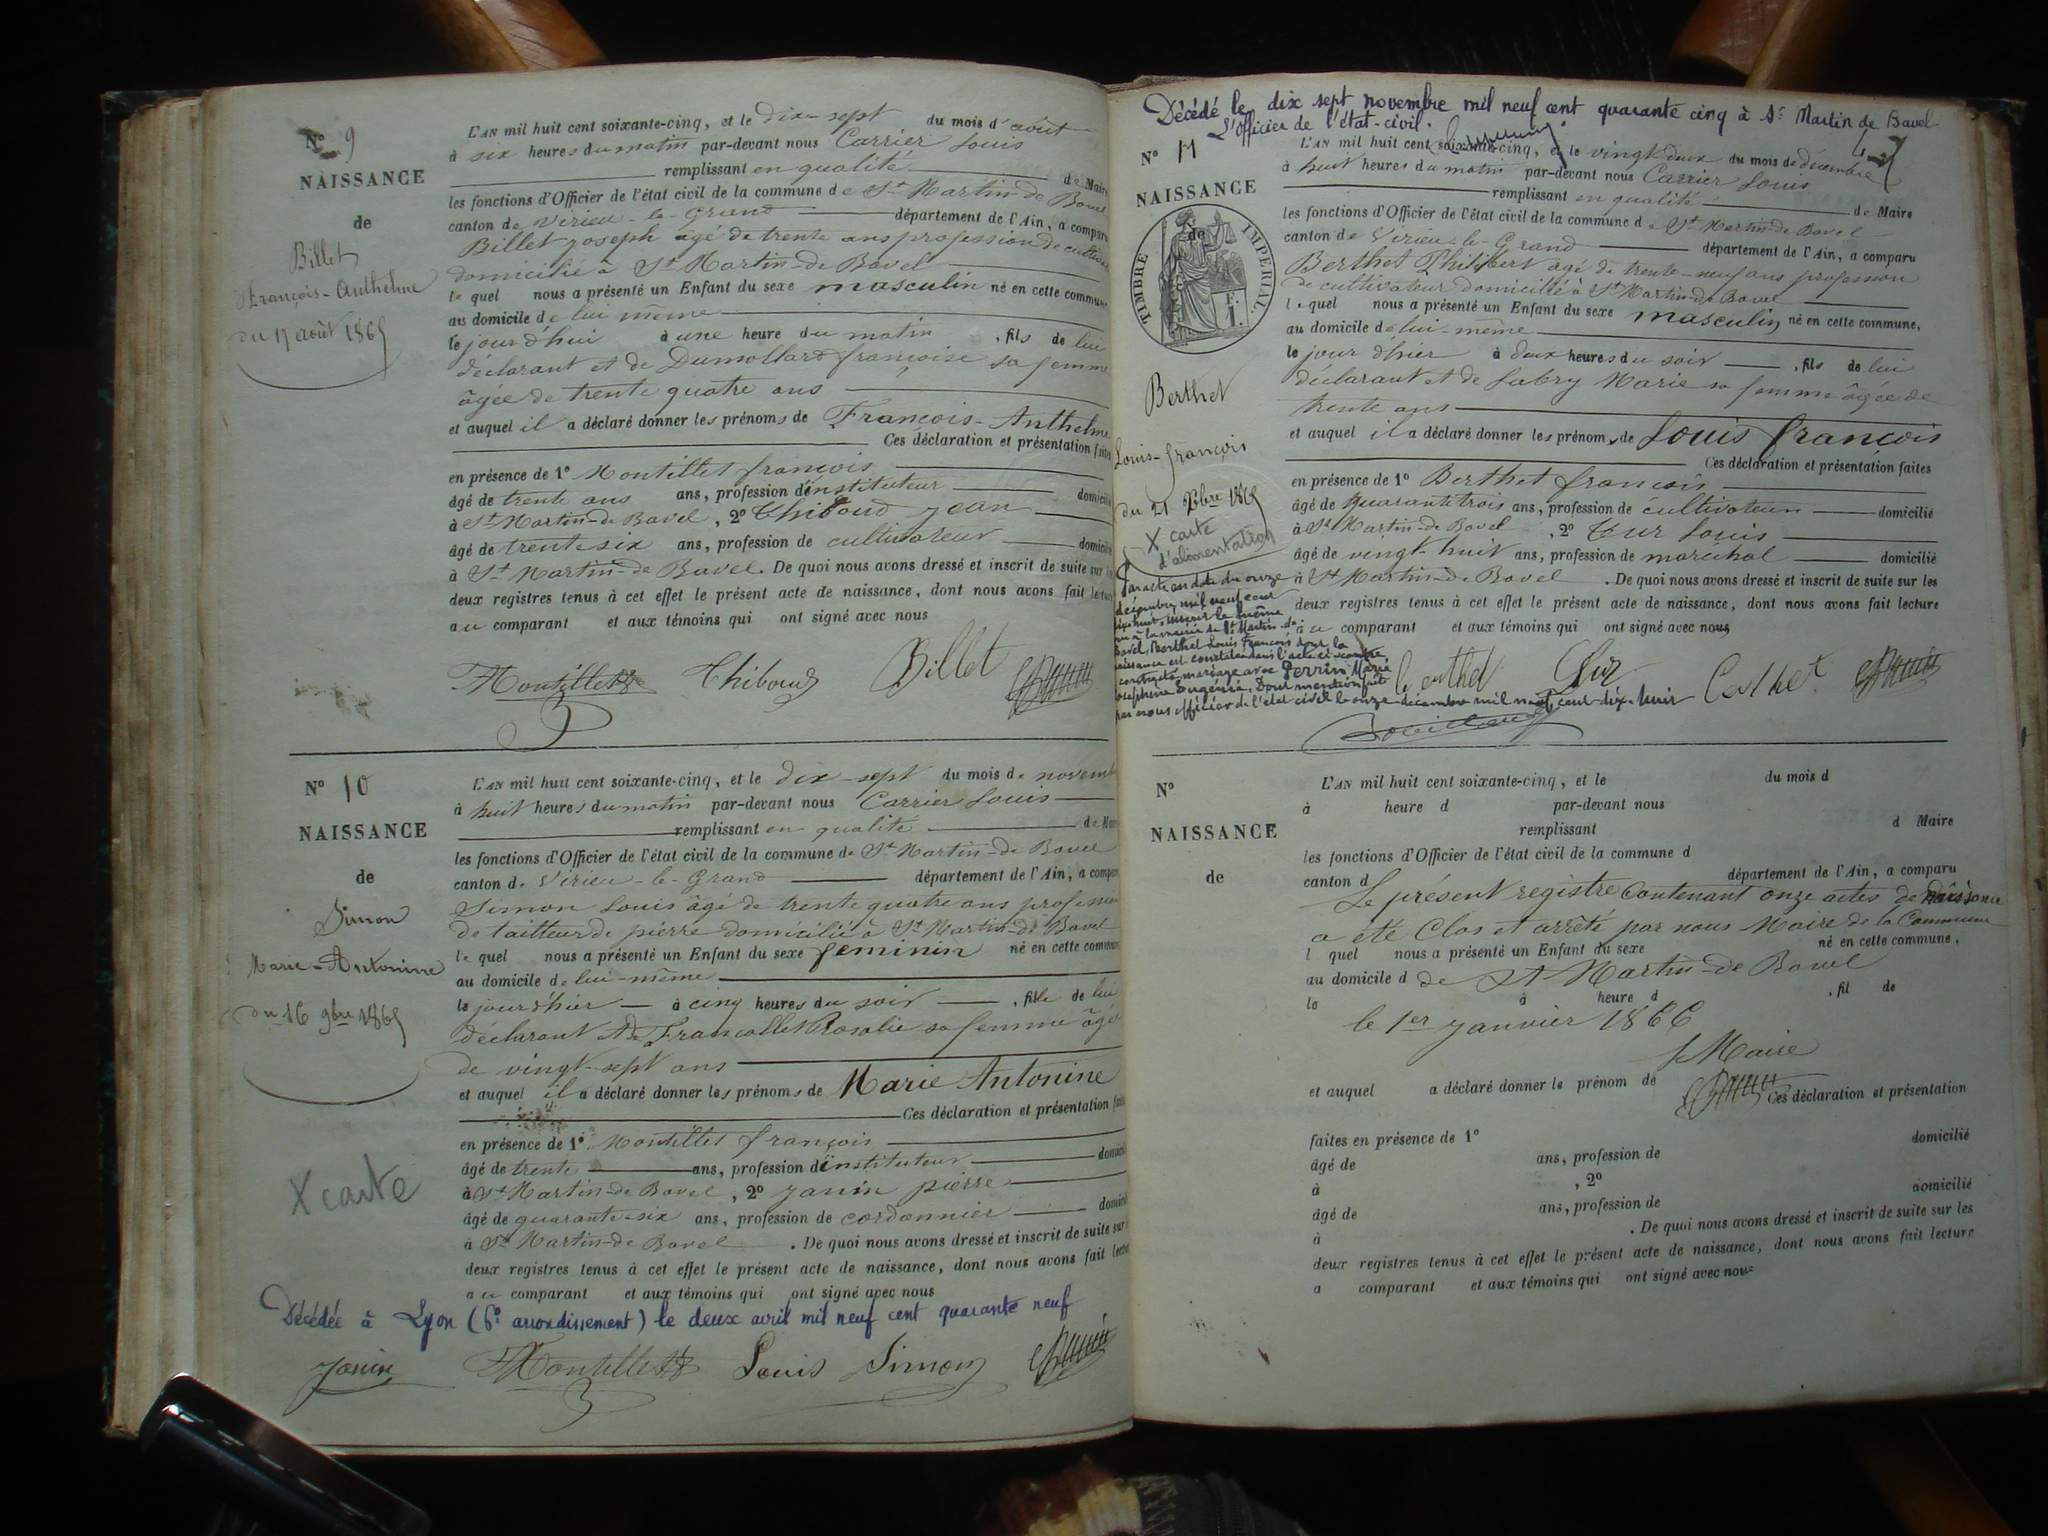 N° 9
NAISSANCE
de
Billet
François-Anthelme
du 17 août 1865
L'AN mil huit cent soixante-cinq, et le dix-sept du mois d'août
à six heures du matin par-devant nous Carrier Louis
remplissant en qualité de Maire
les fonctions d'Officier de l'état civil de la commune de St Martin-de Bavel
canton de Virieu-le-Grand département de l'Ain, a comparu
Billet Joseph âgé de trente ans profession de cultivateur
domicilié à St Martin-de Bavel
lequel nous a présenté un Enfant du sexe masculin né en cette commune
au domicile de lui même
le jour d'hui à une heure du matin, fils de lui
déclarant et de Dumollard françoise sa femme
âgée de trente quatre ans
et auquel il a déclaré donner les prénoms de François-Anthelme
Ces déclaration et présentation faites
en présence de 1° Montillet françois
âgé de trente ans ans, profession d'instituteur domicilié
à St Martin-de Bavel, 2° Thiboud Jean
âgé de trente six ans, profession de cultivateur domicilié
à St Martin-de Bavel. De quoi nous avons dressé et inscrit de suite sur les
deux registres tenus à cet effet le présent acte de naissance, dont nous avons fait lecture
au comparant et aux témoins qui ont signé avec nous
Montillet Thiboud Billet
N° 10
NAISSANCE
de
Simon
Marie-Antonine
du 16 9bre 1865
X carte
L'AN mil huit cent soixante-cinq, et le dix-sept du mois de novembre
à huit heures du matin par-devant nous Carrier Louis
remplissant en qualité de Maire
les fonctions d'Officier de l'état civil de la commune de St Martin-de Bavel
canton de Virieu-le-Grand département de l'Ain, a comparu
Simon Louis âgé de trente quatre ans profession
de tailleur de pierre domicilié à St Martin-de Bavel
lequel nous a présenté un Enfant du sexe feminin né en cette commune
au domicile de lui-même
le jour d'hier à cinq heures du soir, fille de lui
déclarant et de Francollet Rosalie sa femme âgée
de vingt-sept ans
et auquel il a déclaré donner les prénoms de Marie Antonine
Ces déclaration et présentation faites
en présence de 1° Montillet françois
âgé de trente ans, profession d'instituteur domicilié
à St Martin-de Bavel, 2° Janin pierre
âgé de quarante-six ans, profession de cordonnier domicilié
à St Martin-de Bavel. De quoi nous avons dressé et inscrit de suite sur les
deux registres tenus à cet effet le présent acte de naissance, dont nous avons fait lecture
au comparant et aux témoins qui ont signé avec nous
Décédée à Lyon (6e arrondissement) le deux avril mil neuf cent quarante neuf
Janin Montillet Louis Simon
Décédé le dix sept novembre mil neuf cent quarante cinq à St Martin de Bavel
L'officier de l'état-civil.
N° 11
NAISSANCE
de
TIMBRE IMPERIAL
1 F.
Berthet
Louis-françois
du 21 Xbre 1865
X carte
d'alimentation
Par acte en date du onze
décembre mil neuf cent
dix huit, inscrit le même
jour à la mairie de St Martin-de-
Bavel, Berthet Louis François dont la
naissance est constatée dans l'acte ci-contre
a contracté mariage avec Perrin Marie
Joséphine Eugénie. Dont mention faite
par nous officier de l'état civil le onze décembre mil neuf cent dix-huit
L'AN mil huit cent soixante-cinq, et le vingt-deux du mois de décembre
à huit heures du matin par-devant nous Carrier Louis
remplissant en qualité de Maire
les fonctions d'Officier de l'état civil de la commune de St Martin-de Bavel
canton de Virieu-le-Grand département de l'Ain, a comparu
Berthet Philibert âgé de trente-neuf ans profession
de cultivateur domicilié à St Martin-de Bavel
lequel nous a présenté un Enfant du sexe masculin né en cette commune,
au domicile de lui-même
le jour d'hier à deux heures du soir, fils de lui
déclarant et de Fabry Marie sa femme âgée de
trente ans
et auquel il a déclaré donner les prénoms de Louis françois
Ces déclaration et présentation faites
en présence de 1° Berthet françois
âgé de Quarante trois ans, profession de cultivateur domicilié
à St Martin-de Bavel, 2° Cur Louis
âgé de vingt-huit ans, profession de maréchal domicilié
à St Martin-de Bavel. De quoi nous avons dressé et inscrit de suite sur les
deux registres tenus à cet effet le présent acte de naissance, dont nous avons fait lecture
au comparant et aux témoins qui ont signé avec nous
berthet Cur
N°
NAISSANCE
de
L'AN mil huit cent soixante-cinq, et le du mois d
à heure d par-devant nous
remplissant d Maire
les fonctions d'Officier de l'état civil de la commune d
canton d département de l'Ain, a comparu
Le présent registre contenant onze actes de naissance
a été Clos et arrêté par nous Maire de la Commune
l quel nous a présenté un Enfant du sexe né en cette commune,
au domicile d de St Martin-de Bavel
le à heure d, fil de
le 1er Janvier 1866
le Maire
et auquel a déclaré donner le prénom de
Ces déclaration et présentation
faites en présence de 1° domicilié
âgé de ans, profession de
à, 2° domicilié
âgé de ans, profession de
à. De quoi nous avons dressé et inscrit de suite sur les
deux registres tenus à cet effet le présent acte de naissance, dont nous avons fait lecture
a comparant et aux témoins qui ont signé avec nous